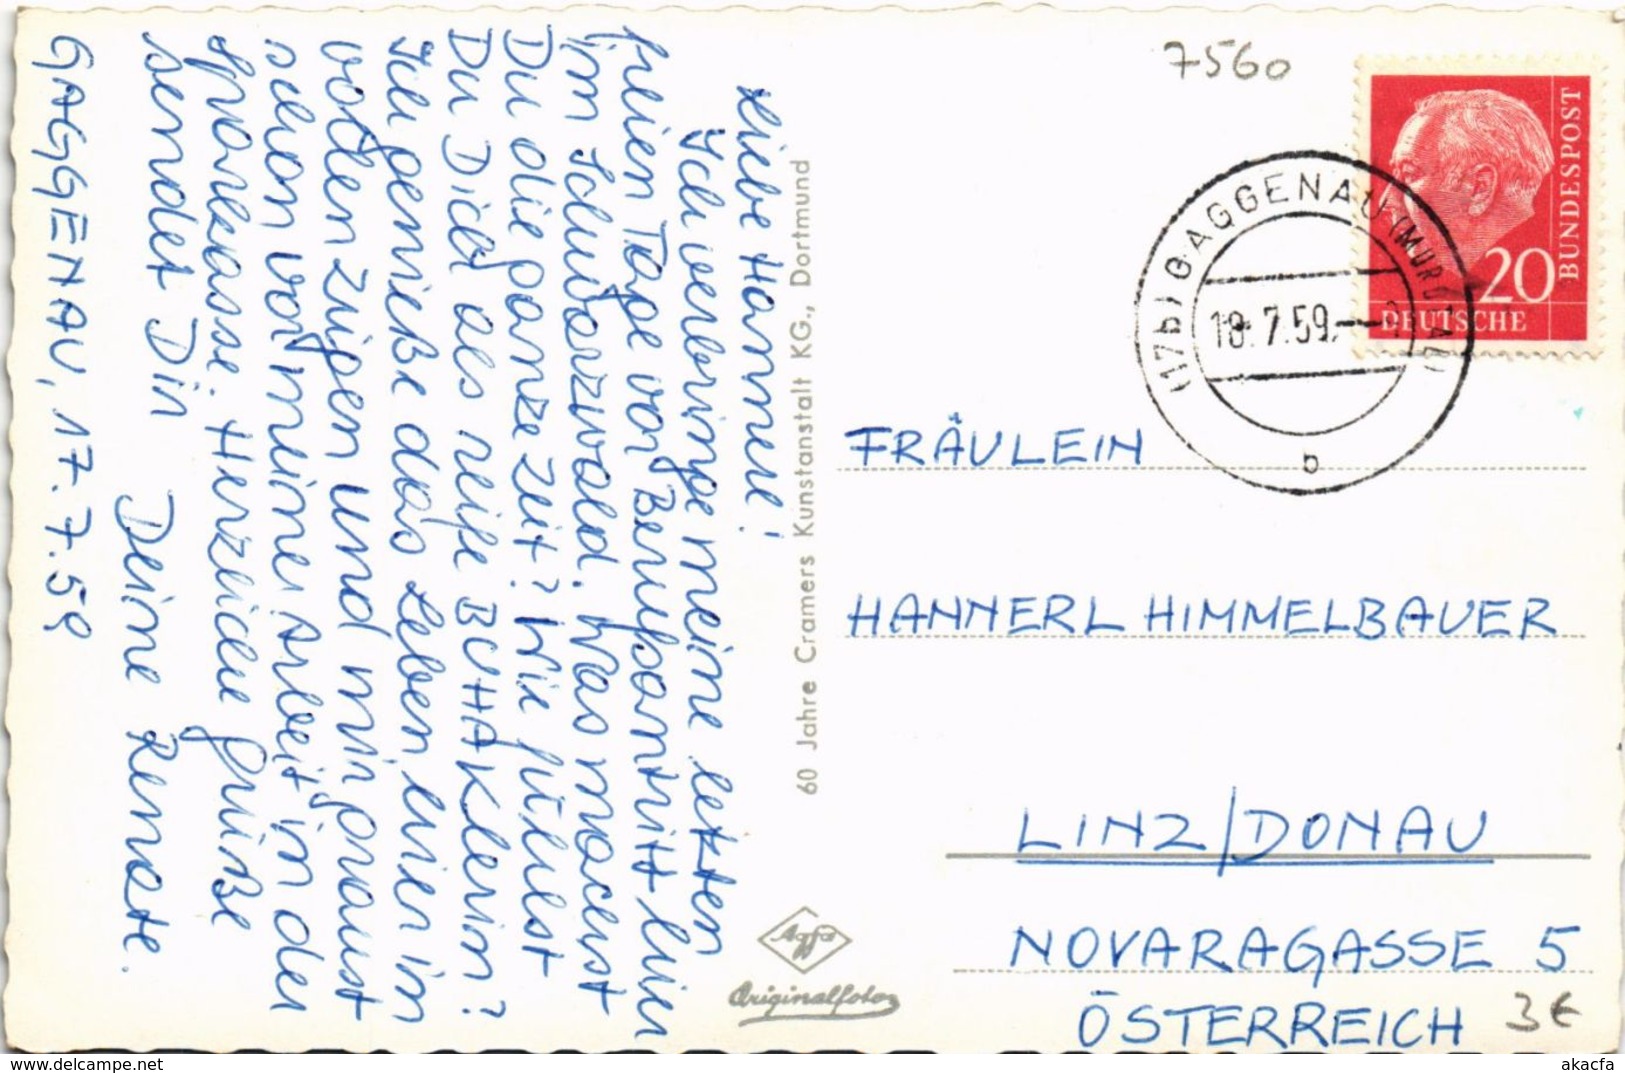 GAGGENAU, 17.7.59
Liebe Hannerl!
Ich verbringe meine letzten
freien Tage vor Berufsantritt hier
im Schwarzwald. Was machst
Du die ganze Zeit? Wie fühlst
Du Dich als reife BUHAKlerin?
Ich genieße das Leben hier in
vollen Zügen und mir graust
schon vor meiner Arbeit in der
Sparkasse. Herzliche Grüße
sendet Dir
Deine Renate.
60 Jahre Cramers Kunstanstalt KG., Dortmund
Agfa
Originalfoto
7560
20
DEUTSCHE
BUNDESPOST
(17b) GAGGENAU (MURGTAL)
18.7.59.
b
FRÄULEIN
HANNERL HIMMELBAUER
LINZ/DONAU
NOVARAGASSE 5
ÖSTERREICH
3€
akacfa